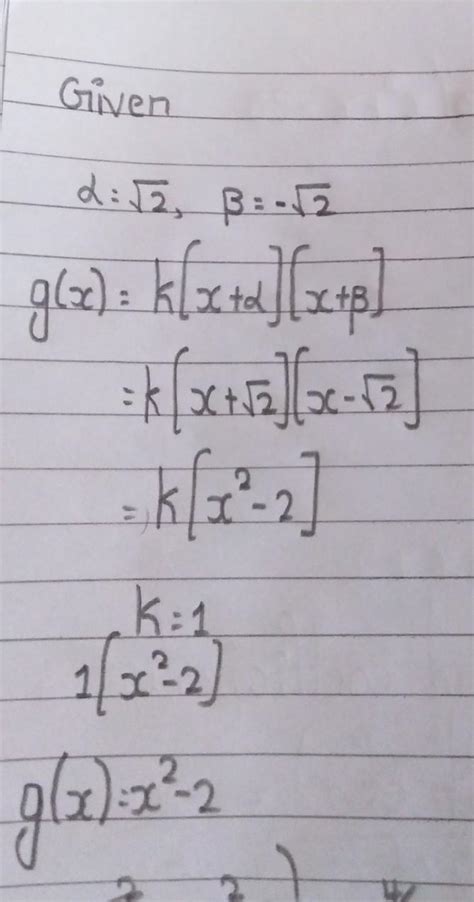 Given
α = √2, β = -√2
g(x) = k[x+α][x+β]
= k[x+√2][x-√2]
= k[x²-2]
k = 1
1[x²-2]
g(x) = x²-2